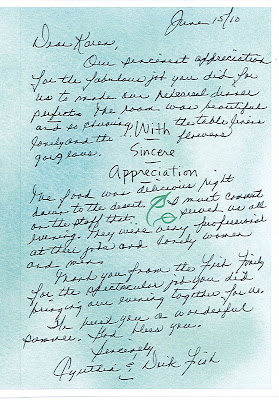 June 15/10
Dear Karen,
Our sincerest appreciation
for the fabulous job you did for
us to make our rehearsal dinner
perfect. The room was beautiful
and so charming, the table linens
lovely and the flowers
gorgeous.
With
Sincere
Appreciation
The food was delicious right
down to the desert. I must comment
on the staff that served us all
evening. They were very professional
at their jobs and lovely women
and men.
Thank you from the Fish Family
for the spectacular job you did
bringing our evening together for us.
We wish you a wonderful
summer. God bless you.
Sincerely
Cynthia & Dick Fish